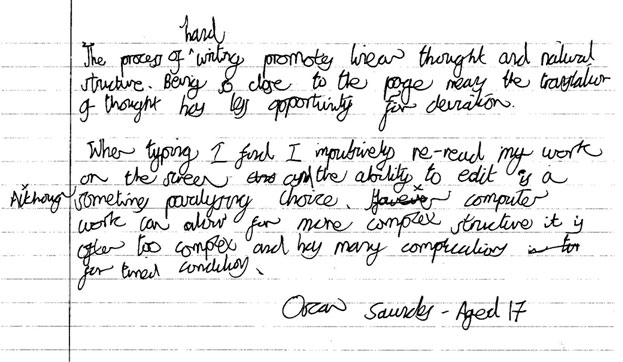 hand
The process of ^ writing promotes linear thought and natural
structure. Being so close to the page means the translation
of thought has less opportunity for deviation.
When typing I find I impulsively re-read my work
on the screen and the ability to edit is a
Although sometimes paralysing choice. However computer
work can allow for more complex structure it is
often too complex and has many complications
for timed conditions.
Oscar Saunders - Aged 17